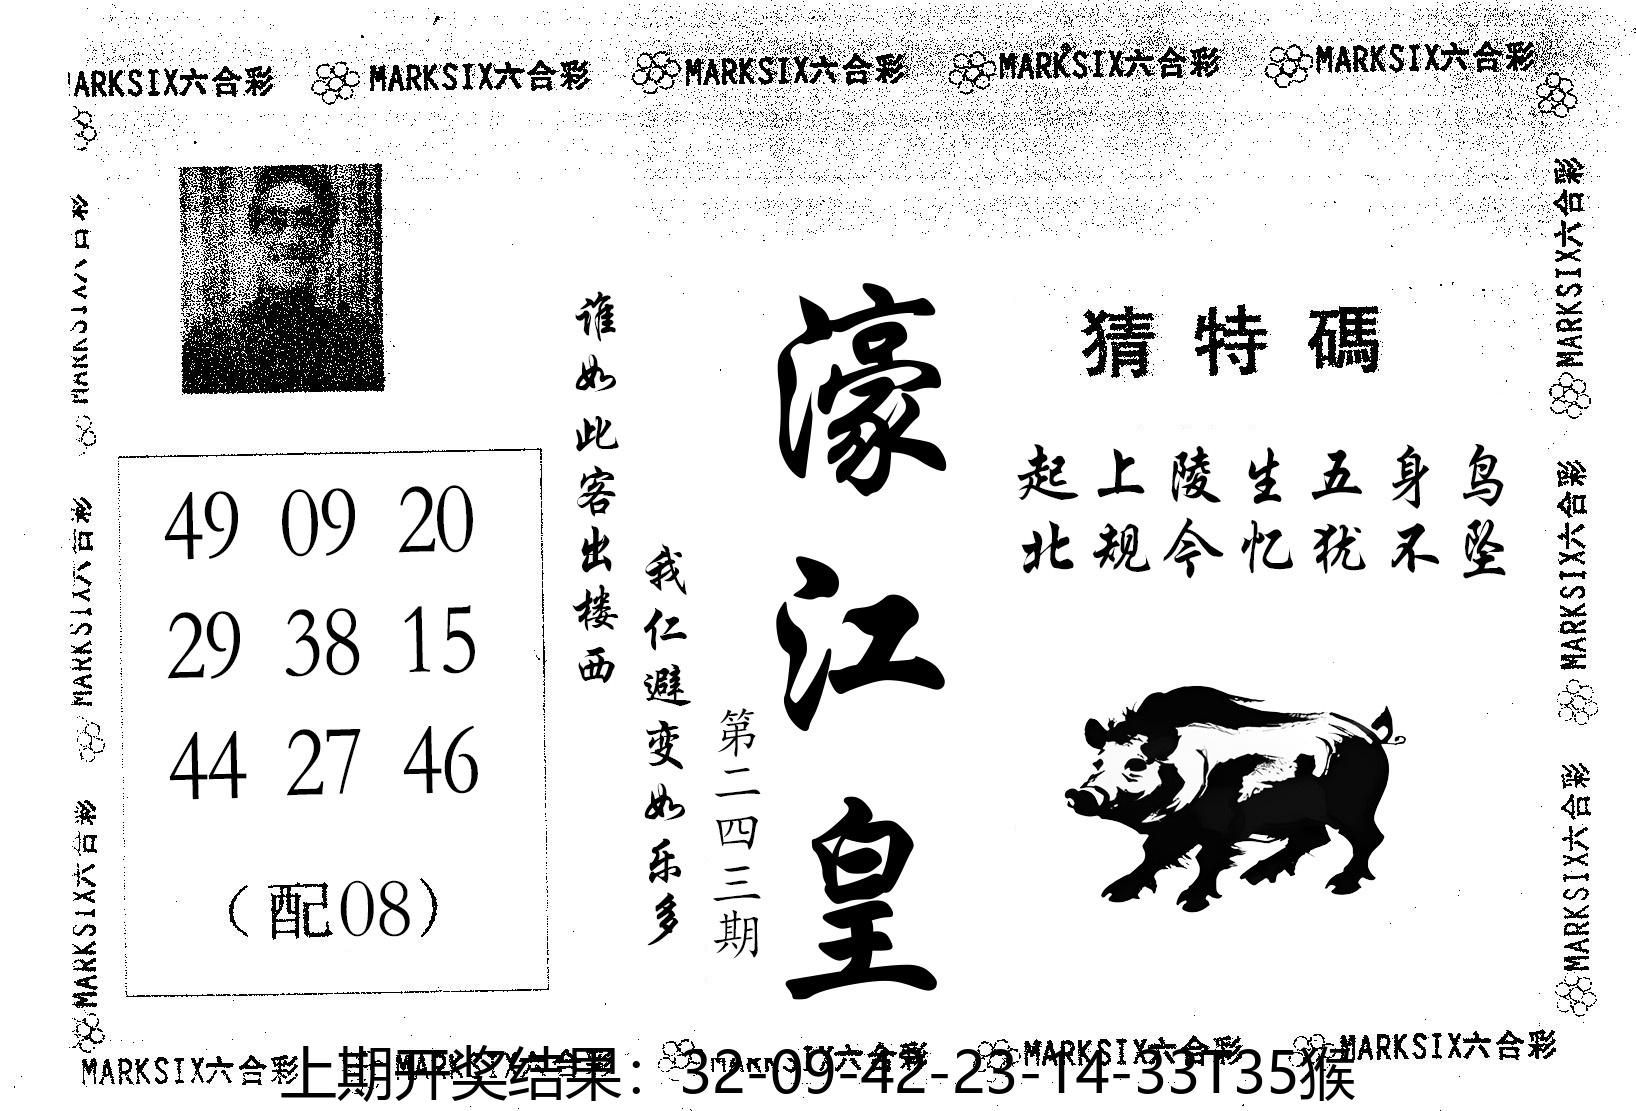 MARKSIX六合彩 MARKSIX六合彩 MARKSIX六合彩 MARKSIX六合彩 MARKSIX六合彩
猜特碼
起上陵生五身鸟
北规今忆犹不坠
濠江皇
第二四三期
谁如此客出楼西
我仁避变如乐多
49 09 20
29 38 15
44 27 46
（配08）
MARKSIX六合彩
MARKSIX六合彩
MARKSIX六合彩
MARKSIX六合彩
MARKSIX六合彩
MARKSIX六合彩
MARKSIX六合彩 MARKSIX六合彩 MARKSIX六合彩 MARKSIX六合彩 MARKSIX六合彩
上期开奖结果：32-09-42-23-14-33T35猴